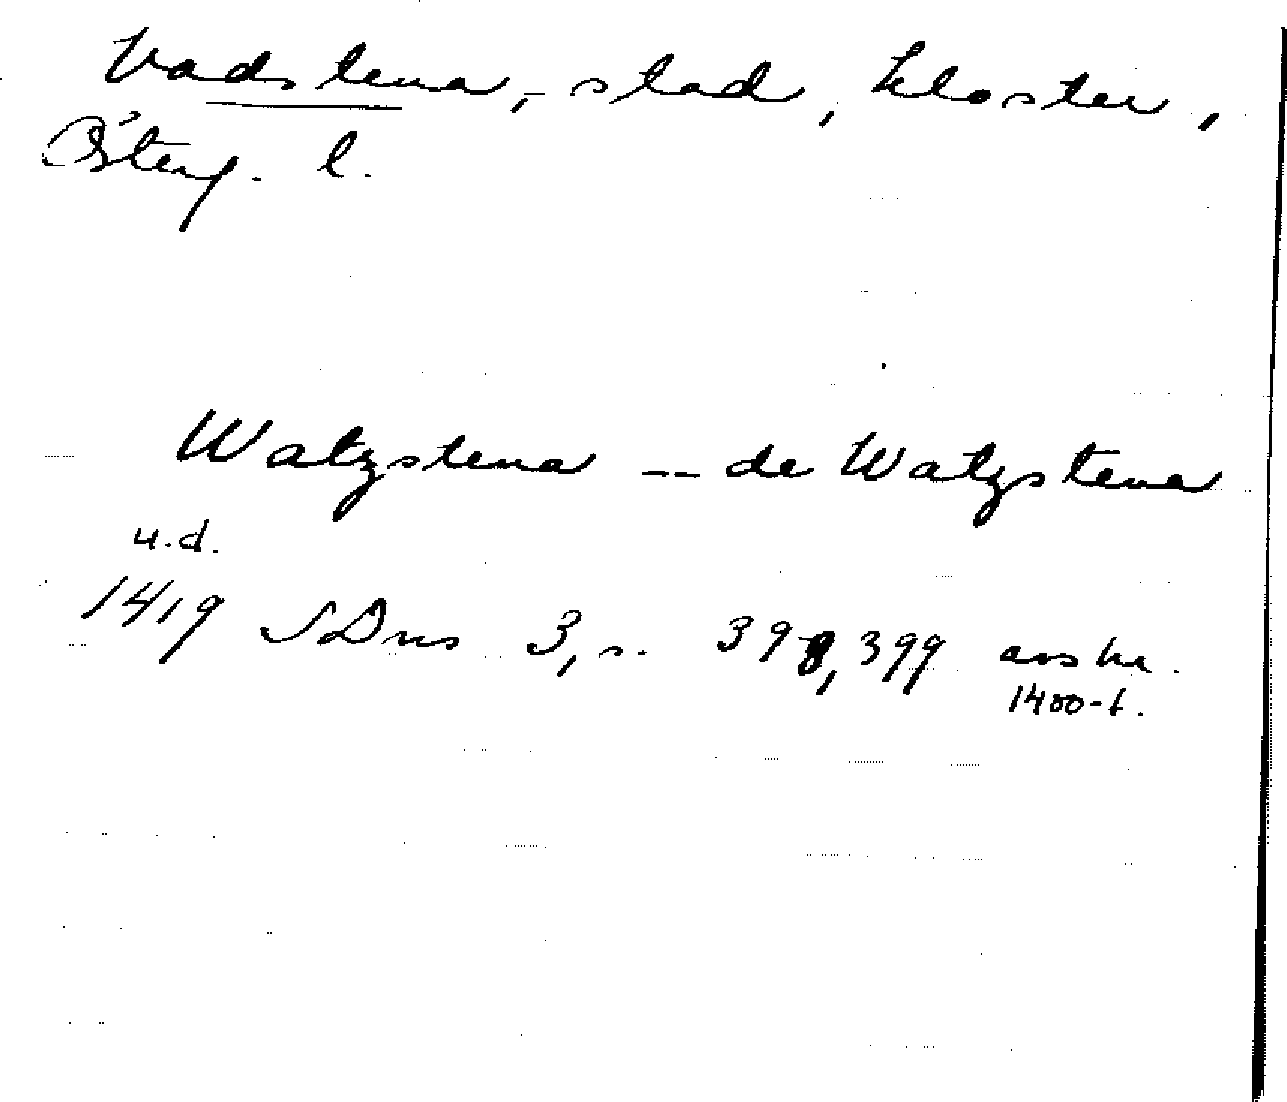 Vadstena, stad, kloster,
Österg. l.
Watzstena -- de Watzstena
u.d.
1419 SDns 3, s. 398, 399 avskr.
1400-t.